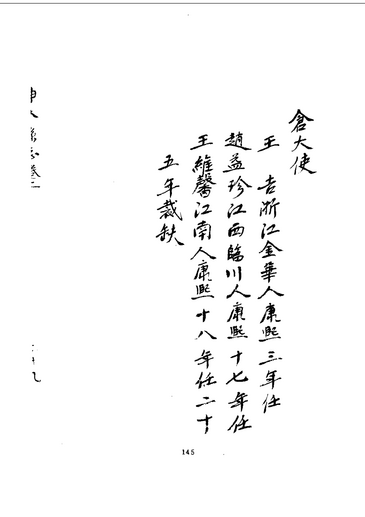 倉大使
王 吉浙江金華人康熙三年任
趙益珍江西臨川人康熙十七年任
王維馨江南人康熙十八年任二十
五年裁缺
145